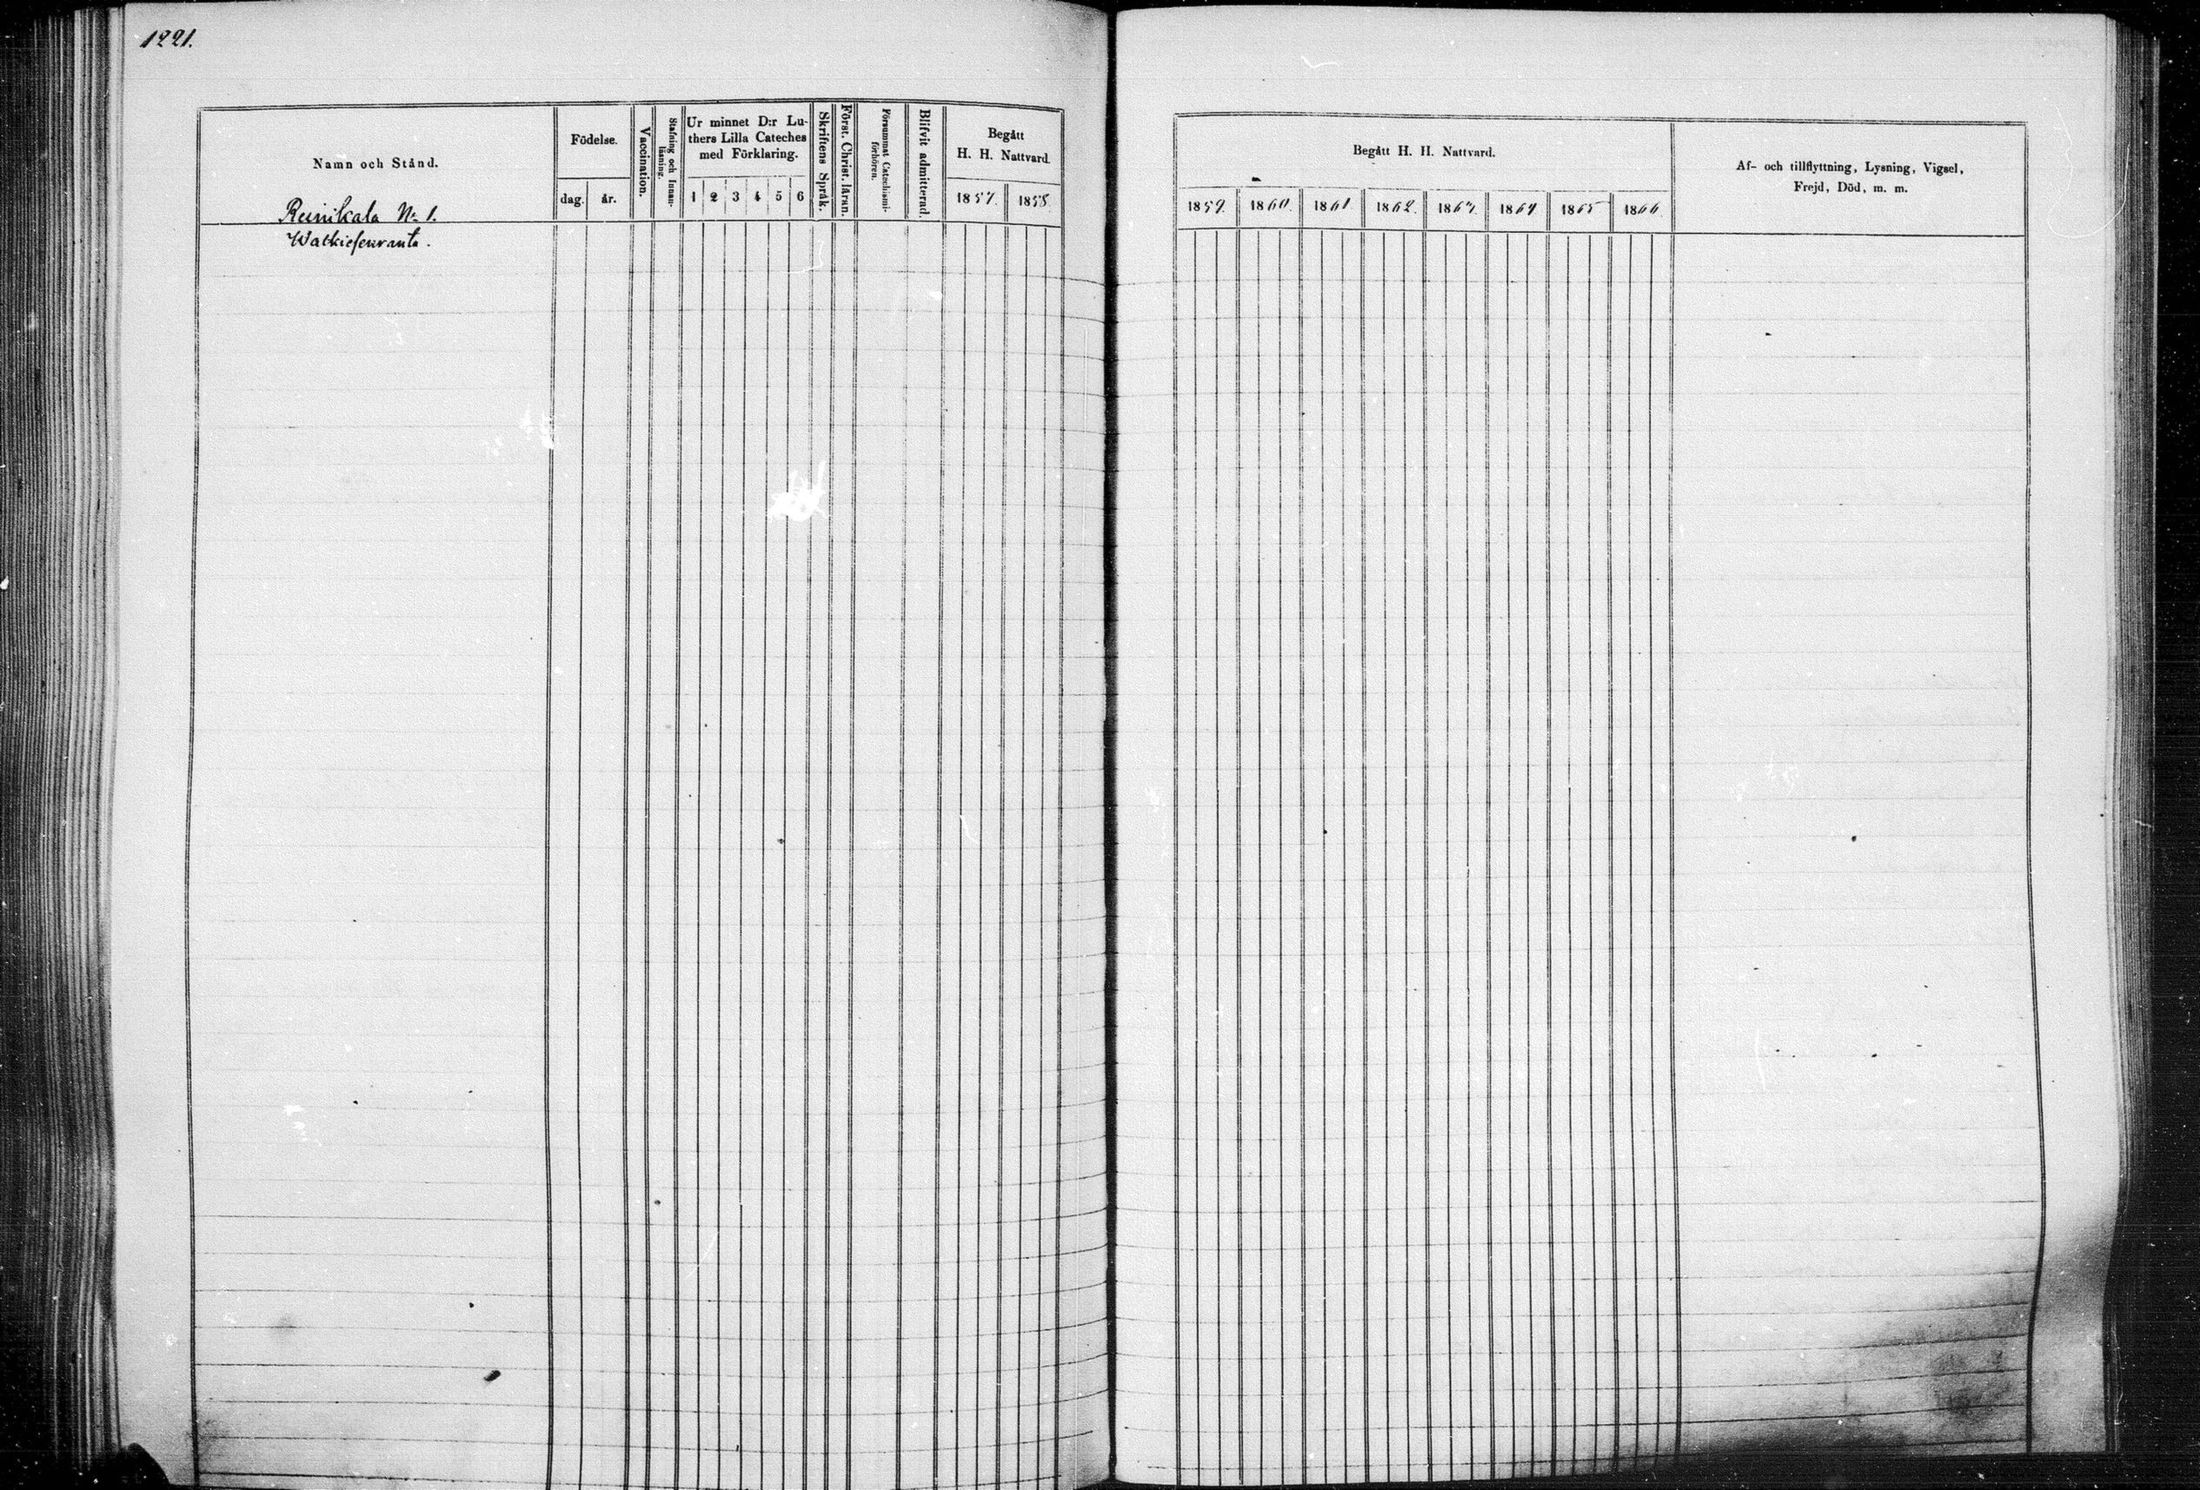 1221.
Namn och Stånd.
Reinikala No 1.
Watkiesenranta.
Födelse.
dag.
år.
Vaccination.
Stafning och Innan-
läsning.
Ur minnet D:r Lu-
thers Lilla Cateches
med Förklaring.
1 2 3 4 5 6
Skriftens Språk.
Först. Christ. läran.
Försummat Catechismi-
förhören.
Blifvit admitterad.
Begått
H. H. Nattvard.
1857. 1858.
Begått H. H. Nattvard.
1859. 1860. 1861 1862. 1863. 1864 1865 1866
Af- och tillflyttning, Lysning, Vigsel,
Frejd, Död, m. m.